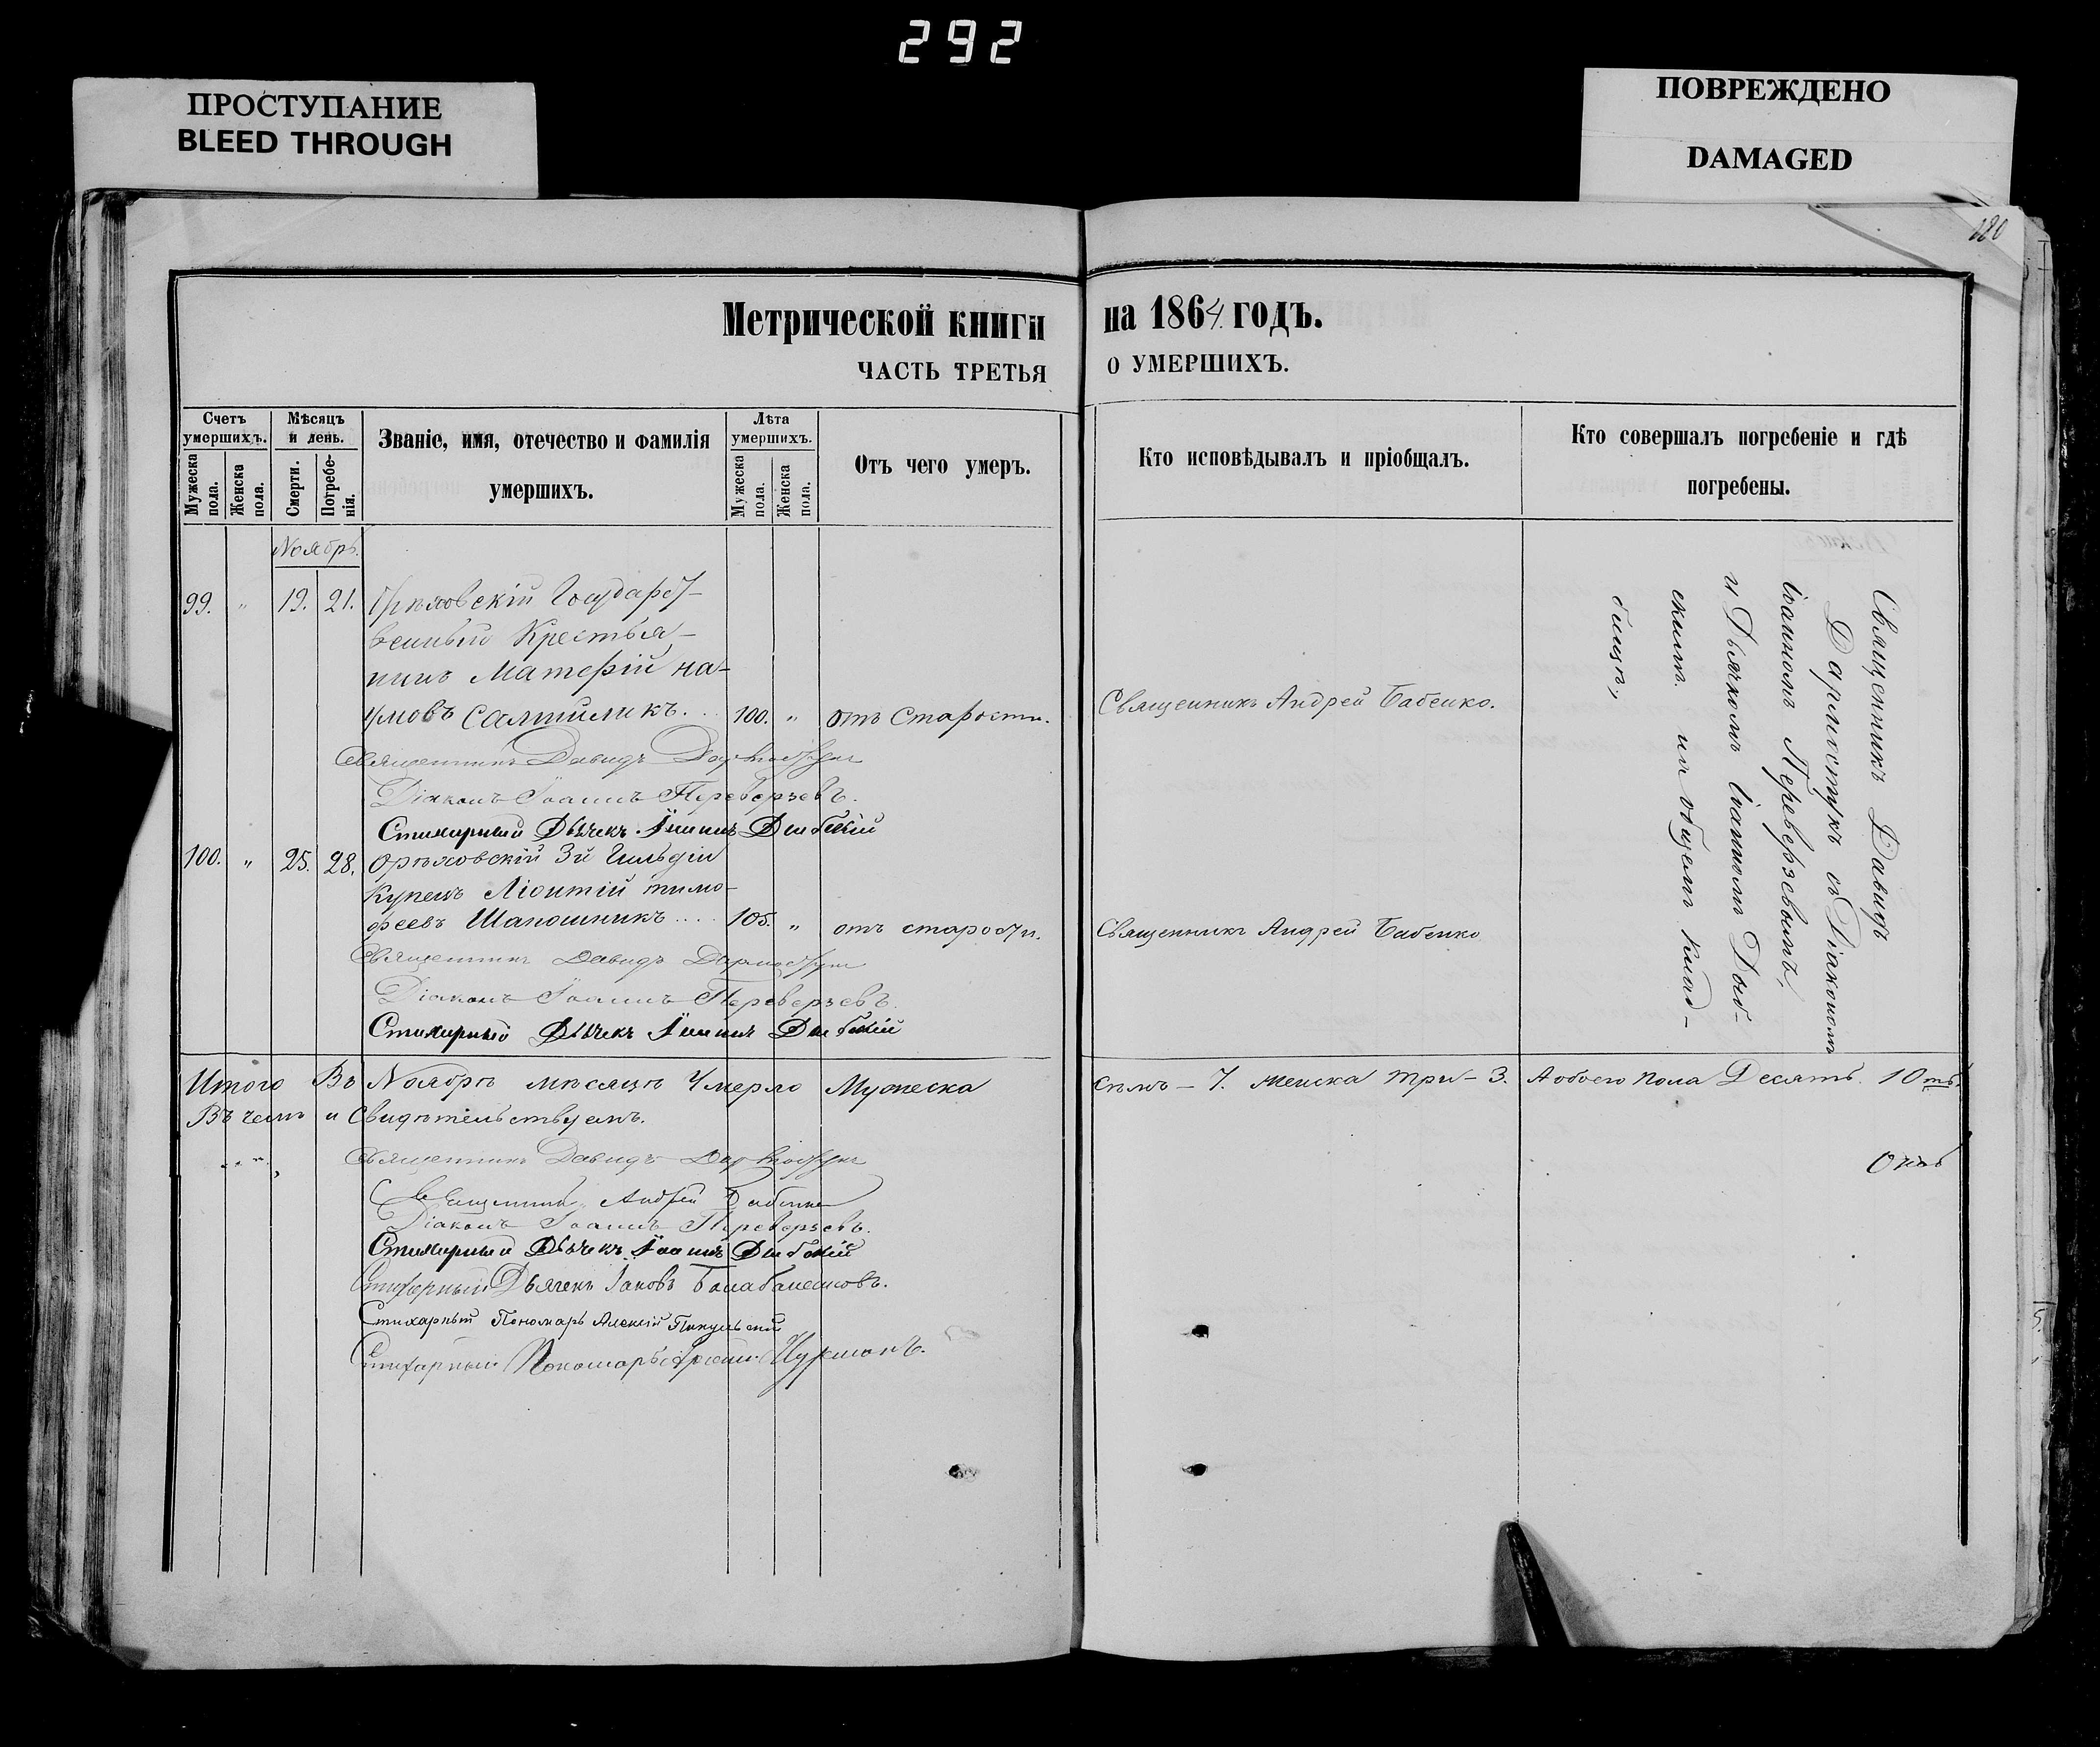 292
ПРОСТУПАНИЕ
BLEED THROUGH
ПОВРЕЖДЕНО
DAMAGED
180
Метрической книги на 1864 годъ.
ЧАСТЬ ТРЕТЬЯ О УМЕРШИХЪ.
Счетъ умершихъ.
Мужеска пола.
Женска пола.
Мѣсяцъ и день.
Смерти.
Погребенія.
Званіе, имя, отечество и фамилія умершихъ.
Лѣта умершихъ.
Мужеска пола.
Женска пола.
Отъ чего умеръ.
Кто исповѣдывалъ и пріобщалъ.
Кто совершалъ погребеніе и гдѣ погребены.
Ноябрь.
99. " 19. 21. Орѣховскій Государст-
венный Крестья-
нинъ
умовъ 100. " отъ Старости. Священникъ Андрей Бабенко.
Священникъ Давидъ
Діаконъ Іоаннъ Переверзевъ.
Стихарный Дьячекъ Іоаннъ
100. " 25. 28. Орѣховскій 3й Гильдіи
Купецъ тимо-
феевъ Шапошникъ .... 105. " отъ старости. Священникъ Андрей Бабенко
Священникъ Давидъ
Діаконъ Іоаннъ Переверзевъ.
Стихарный Дьячекъ Іоаннъ
Священникъ Давидъ
съ Діакономъ
Іоанномъ Переверзевымъ,
и Дьячкомъ Іоанномъ Дыб-
скимъ на общемъ клад-
бищѣ,
Итого Въ Ноябрѣ мѣсяцѣ Умерло Мужеска
семь – 7. женска три – 3. А обоего пола Десять. 10ть.
Въ чемъ и Свидѣтельствуемъ.
Священникъ Давидъ
Священникъ Андрей Бабенко
Діаконъ Іоаннъ Переверзевъ.
Стихарный Дьячекъ Іоаннъ
Стихарный Дьячекъ Іаковъ
Стихарный Пономарь Алексій
Стихарный Пономарь